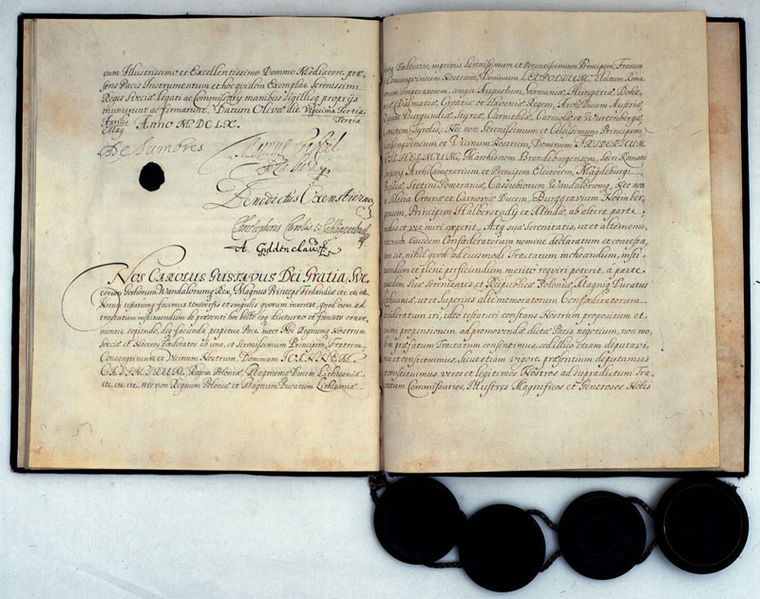 cum Illustrissimo et Excellentissimo Domino Mediatore, præ-
sens Pacis Instrumentum et hoc quidem Exemplar Serenissimi
Regis Sveciæ Legati ac Commissarij manibus Sigillisq; proprijs
muniverunt ac firmarunt. Datum Olivæ die Vigesima Tertia
Aprilis
Maij Tertia
Anno MDCLX.
De Lumbres
Magnus
Benedictus Oxenstierna
Christophorus Carolus
A. Gyldenclau
Nos CAROLUS GUSTAVUS Dei Gratia Sve-
corum Gothorum Vandalorumq; Rex, Magnus Princeps Finlandiæ etc. etc. etc.
Notum testatumq; facimus Universis et singulis quorum interest, quod cum ad
tractatum instituendum de præsenti hoc bello
perpetua Pace, inter Nos Regnumq; Nostrum
Sveciæ et Nostros ab una, et Serenissimum Principem, Fratrem
Consanguineum et Vicinum Nostrum Dominum JOANNEM
CASIMIRUM, Regem Poloniæ, Magnumq; Ducem Lithuaniæ
etc. etc. etc. nec non Regnum Poloniæ et Magnum Ducatum Lithuaniæ
Fæderatos, inprimis Serenissimum et Potentissimum Principem, Fratrem
Consanguineum Nostrum, Dominum LEOPOLDUM, Electum Roma-
Imperatorem, semper Augustum, Germaniæ, Hungariæ Bohe-
Dalmatiæ, Croatiæ et Slavoniæ Regem, ArchiDucem Austriæ,
Burgundiæ, Styriæ, Carinthiæ, Carniolæ et Wurtenbergæ,
Comitem Tyrolis; Nec non Serenissimum et Celsissimum Principem
Consanguineum et Vicinum Nostrum, Dominum FRIDERICUM
WILHELMUM, Marchionem Brandeburgensem, Sacri Romani
Imperij Archicamerarium et Principem Electorem, Magdeburgi
Stetini Pomeraniæ, Cassubiorum Vandalorumq; Nec non
Silesia Crosnæ et Carnoviæ Ducem, Burggravium Norinber-
gensem, Principem Halberstadij et Mindæ, ab altera parte
viri reperit. Atq; sua Serenitatis, ut et altememo-
ratorum Eiusdem Confæderatorum nomine declaratum et contesta-
tum sit, nihil quod ad eiusmodi Tractatum inchoandum, insti-
tuendum et plene perficiendum merito requiri poterit, a parte
Suæ Serenitatis et Reipublicæ Poloniæ, Magniq; Ducatus
Lithuaniæ, ut et Superius alte memoratorum Confæderatorum
desideratum iri; ideo testaturi constans Nostrum propositum et
propensionem, ad promovendum dictæ Pacis negotium, non mo-
do in præfatum Tractatum consensimus, sed illic etiam deputavi-
mus et constituimus, sicut etiam vigore præsentium deputamus
et constituimus veros et legitimos Nostros ad supradictum Tra-
ctatum Commissarios, Illustres Magnificos et Generosos Nobis